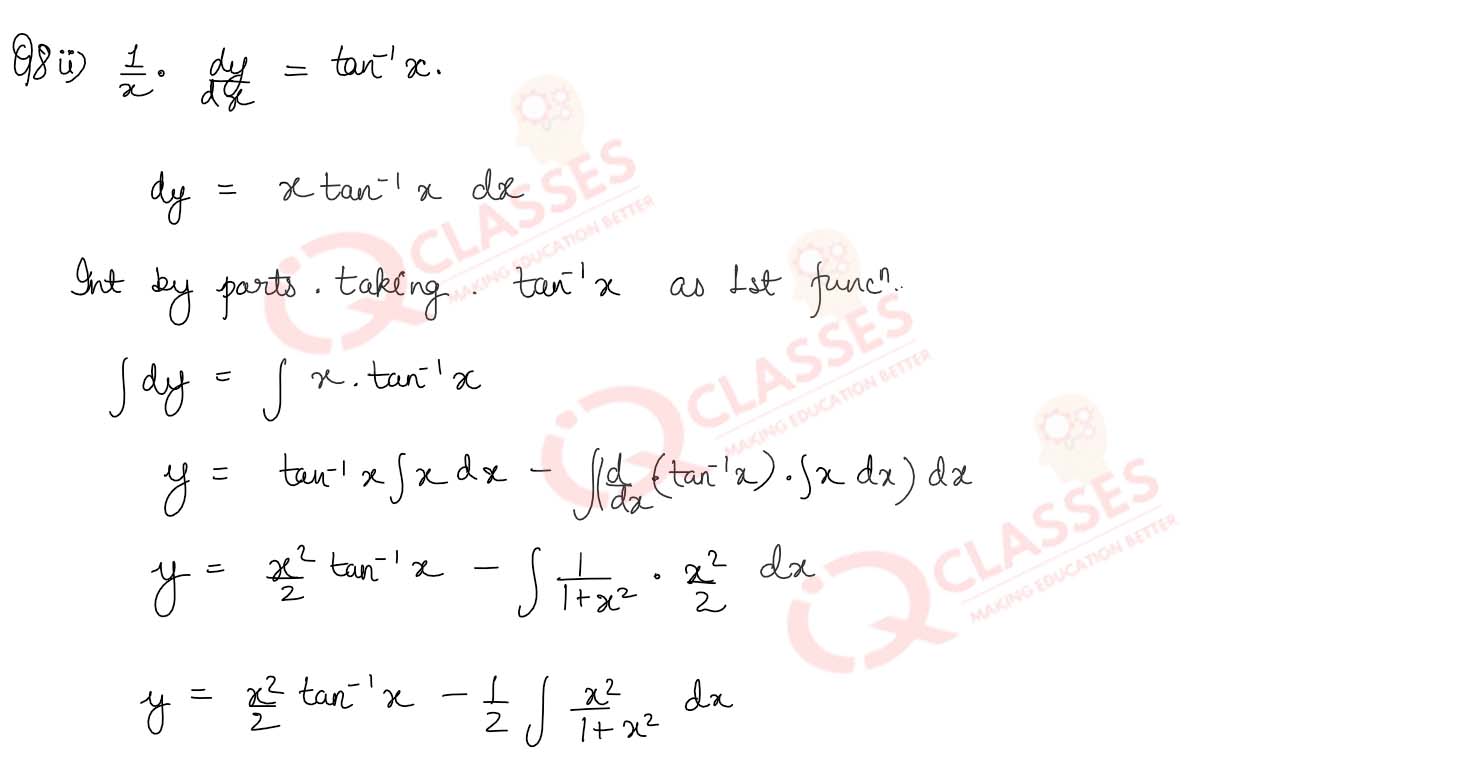 Q8 ii) 1/x · dy/dx = tan⁻¹ x.
dy = x tan⁻¹ x dx
Int by parts. taking. tan⁻¹ x as 1st funcⁿ.
∫ dy = ∫ x. tan⁻¹ x
y = tan⁻¹ x ∫ x dx − ∫(d/dx (tan⁻¹ x) . ∫ x dx) dx
y = x²/2 tan⁻¹ x − ∫ 1/1+x² · x²/2 dx
y = x²/2 tan⁻¹ x − 1/2 ∫ x²/1+x² dx
iQ CLASSES
MAKING EDUCATION BETTER
iQ CLASSES
MAKING EDUCATION BETTER
iQ CLASSES
MAKING EDUCATION BETTER